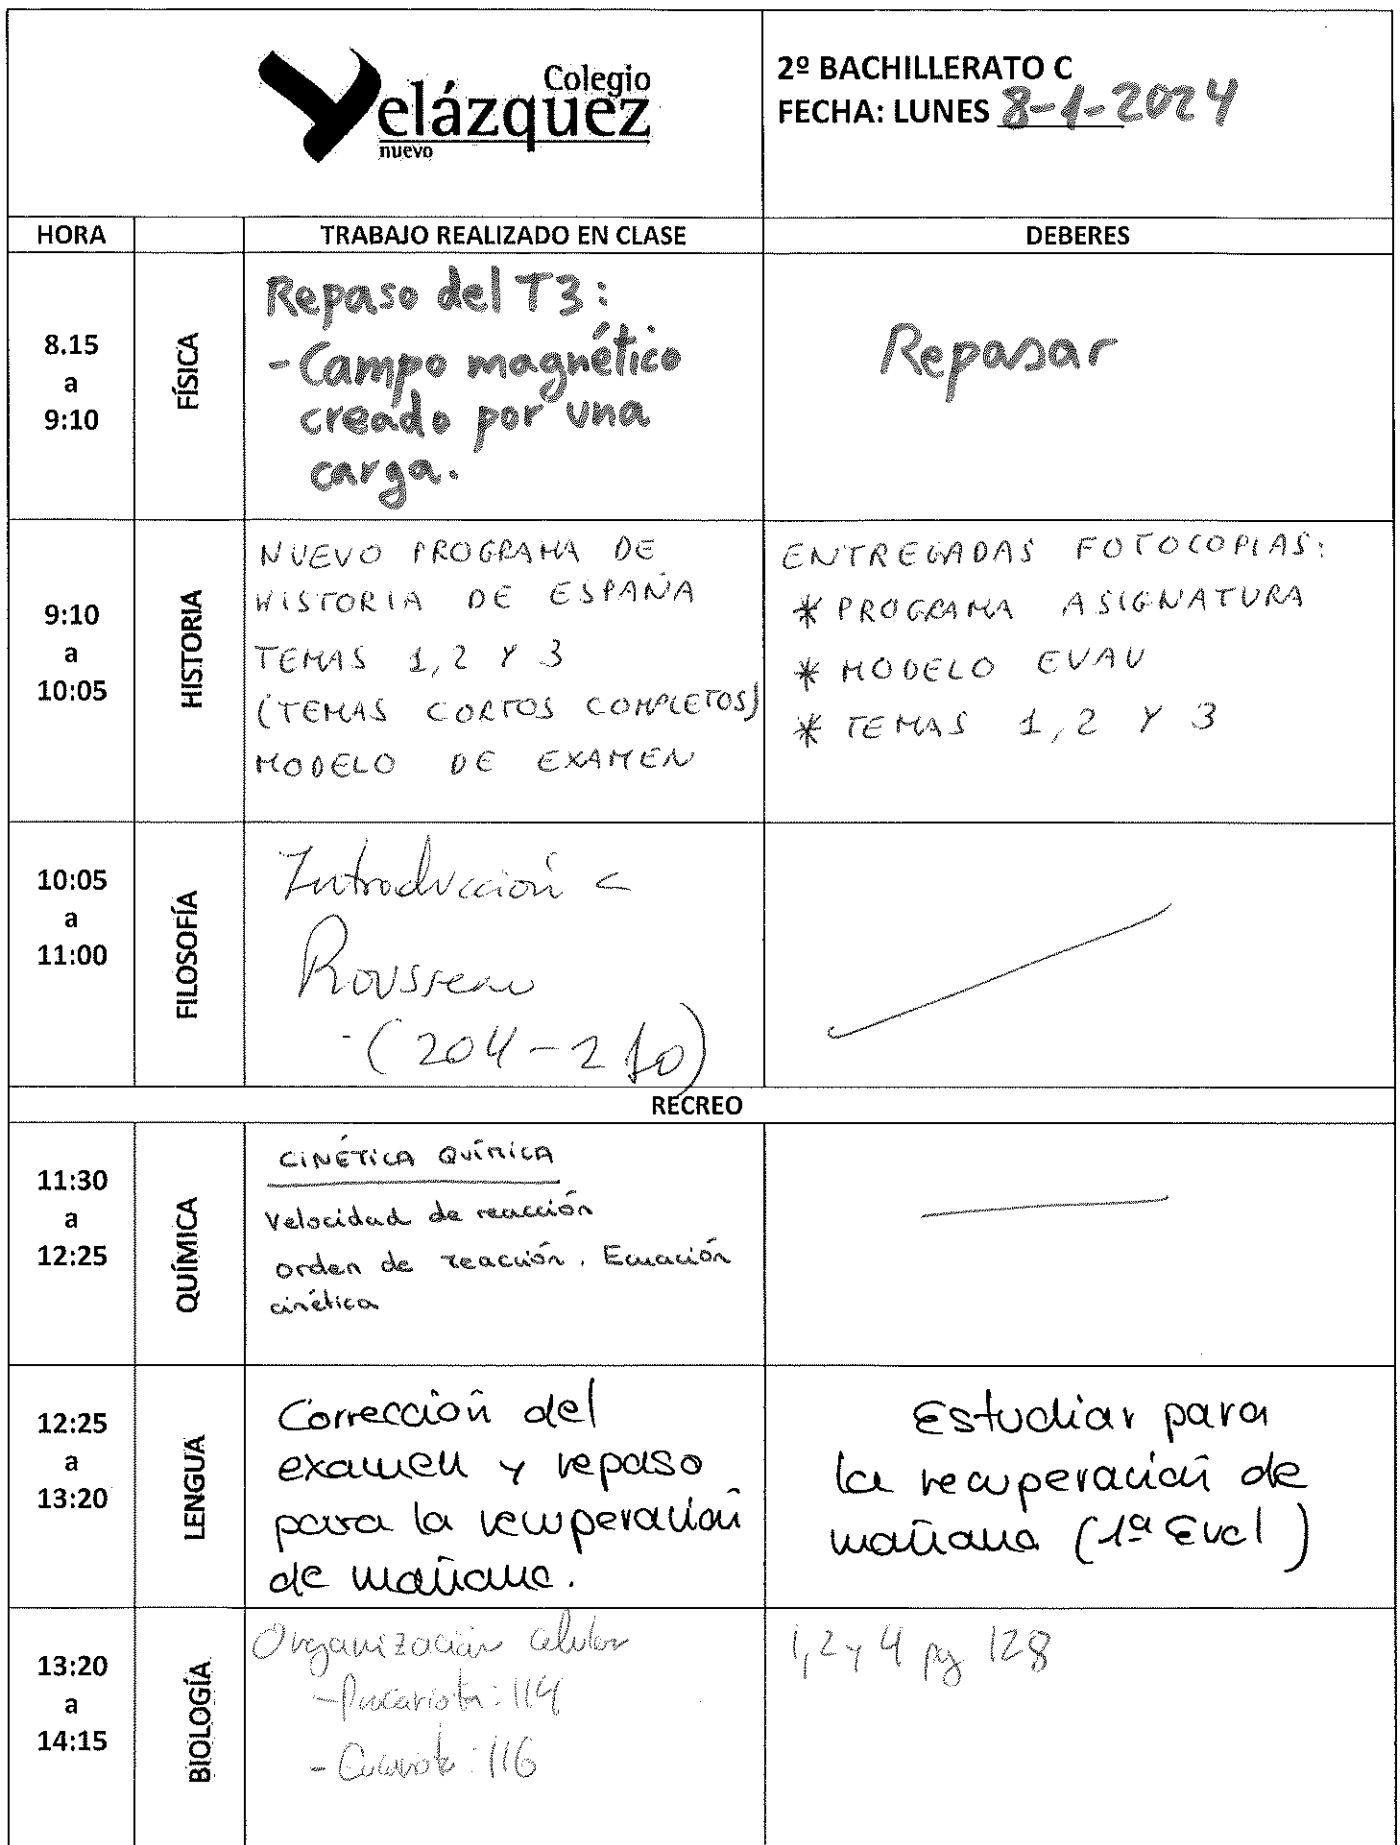 Colegio
Velázquez
nuevo
2º BACHILLERATO C
FECHA: LUNES 8-1-2024
HORA TRABAJO REALIZADO EN CLASE DEBERES
8.15
a
9:10
FÍSICA
Repaso del T3:
- Campo magnético
creado por una
carga.
Repasar
9:10
a
10:05
HISTORIA
NUEVO PROGRAMA DE
HISTORIA DE ESPAÑA
TEMAS 1, 2 Y 3
(TEMAS CORTOS COMPLETOS)
MODELO DE EXAMEN
ENTREGADAS FOTOCOPIAS:
* PROGRAMA ASIGNATURA
* MODELO EVAU
* TEMAS 1, 2 Y 3
10:05
a
11:00
FILOSOFÍA
Introducción a
Rousseau
(204-210)
RECREO
11:30
a
12:25
QUÍMICA
CINÉTICA QUÍMICA
Velocidad de reacción
orden de reacción. Ecuación
cinética
12:25
a
13:20
LENGUA
Corrección del
examen y repaso
para la recuperación
de mañana.
Estudiar para
la recuperación de
mañana (1ª Eval)
13:20
a
14:15
BIOLOGÍA
Organización celular
- Procariota: 114
- Eucariota: 116
1, 2 y 4 pg 128